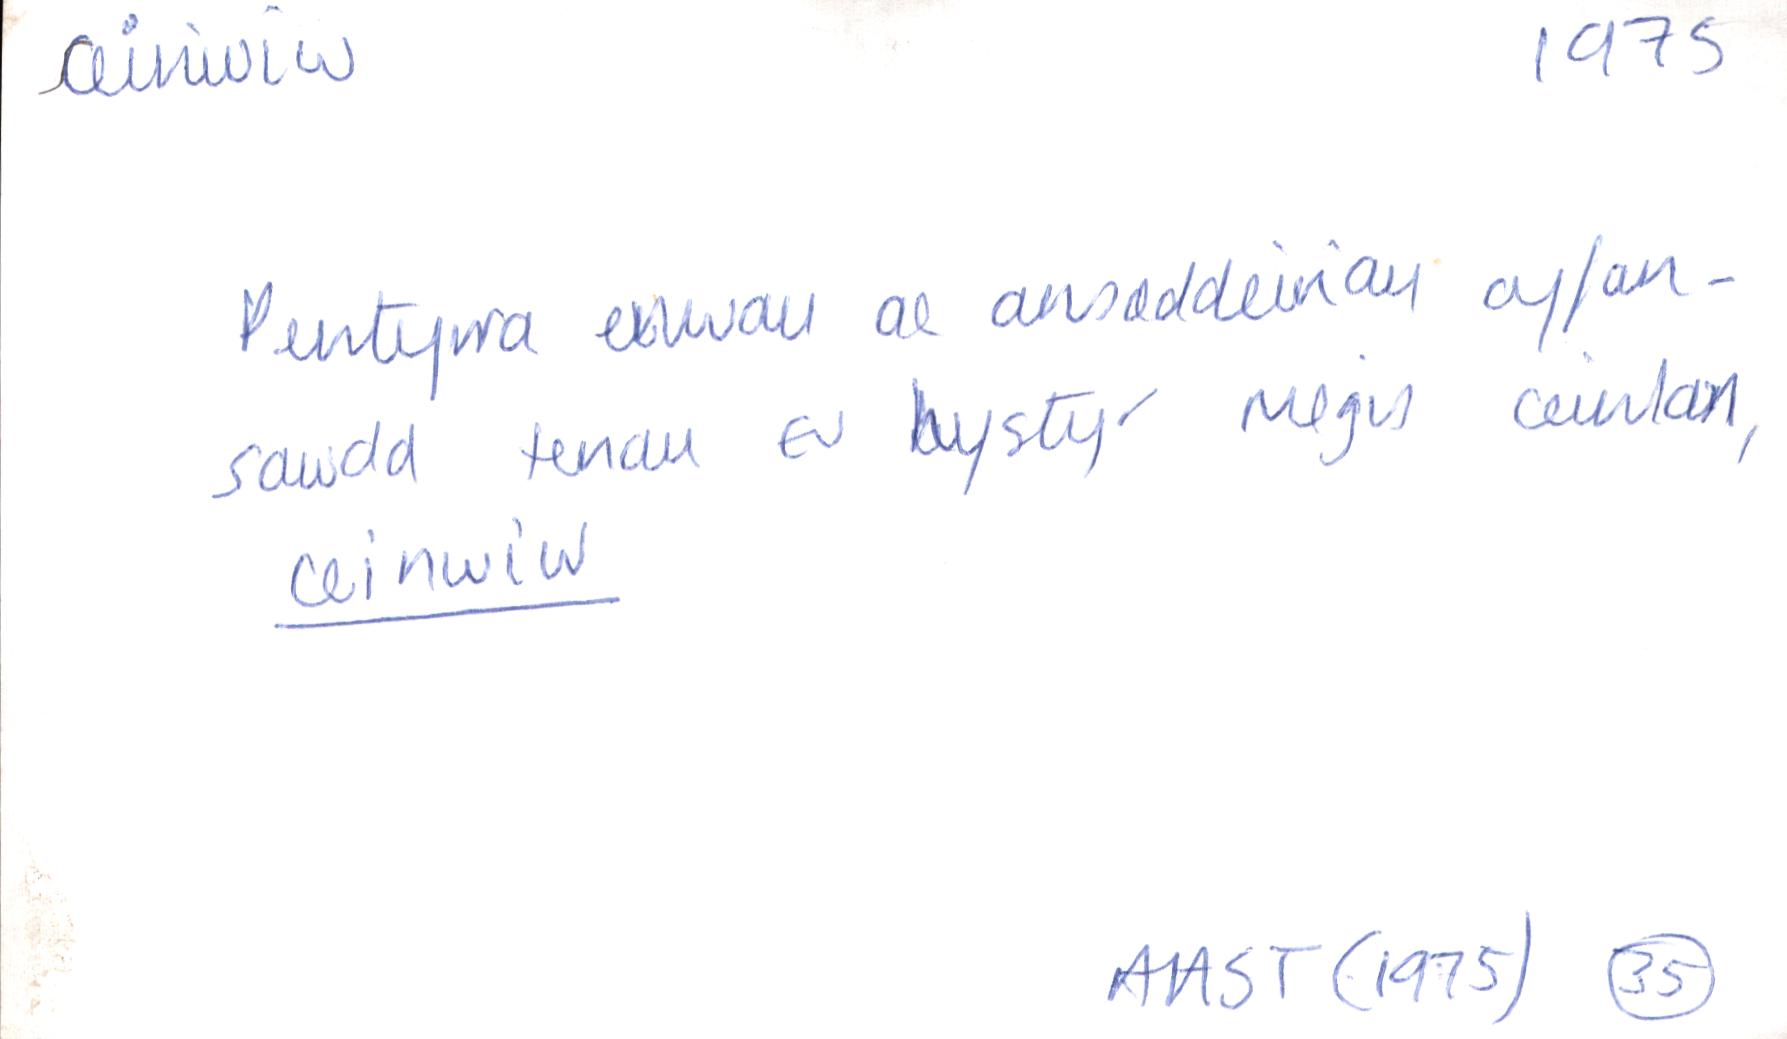 ceinwiw 1975
Pentyrra enwau ac ansoddeiriau cyfan-
sawdd tenau eu hystyr megis ceinlan,
ceinwiw
AAST (1975) 35